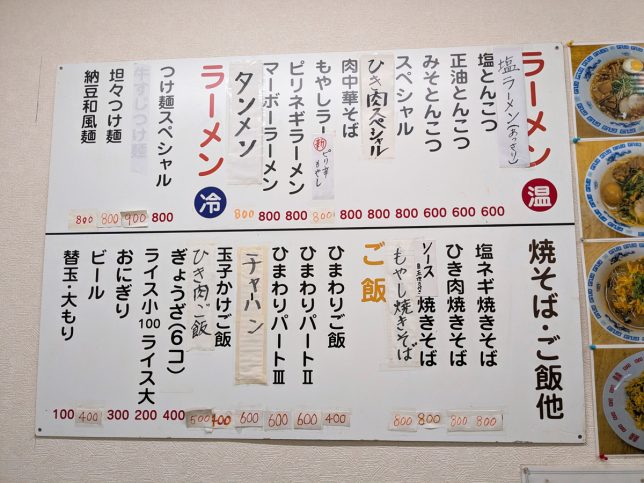 ラーメン 温
塩ラーメン(あっさり)
塩とんこつ 600
正油とんこつ 600
みそとんこつ 600
スペシャル 800
ひき肉スペシャル 800
肉中華そば 800
もやしラー 新 ピリ辛もやし 800
ピリネギラーメン 800
マーボーラーメン 800
タンメン 800
ラーメン 冷
つけ麺スペシャル 800
牛すじつけ麺 900
坦々つけ麺 800
納豆和風麺 800
焼そば・ご飯他
塩ネギ焼きそば 800
ひき肉焼きそば 800
ソース焼きそば 800
もやし焼きそば 800
ご飯
ひまわりご飯 400
ひまわりパートⅡ 600
ひまわりパートⅢ 600
チャーハン 600
玉子かけご飯
ひき肉ご飯 500
ぎょうざ(6コ) 400
ライス小100 ライス大 200
おにぎり 300
ビール 400
替玉・大もり 100